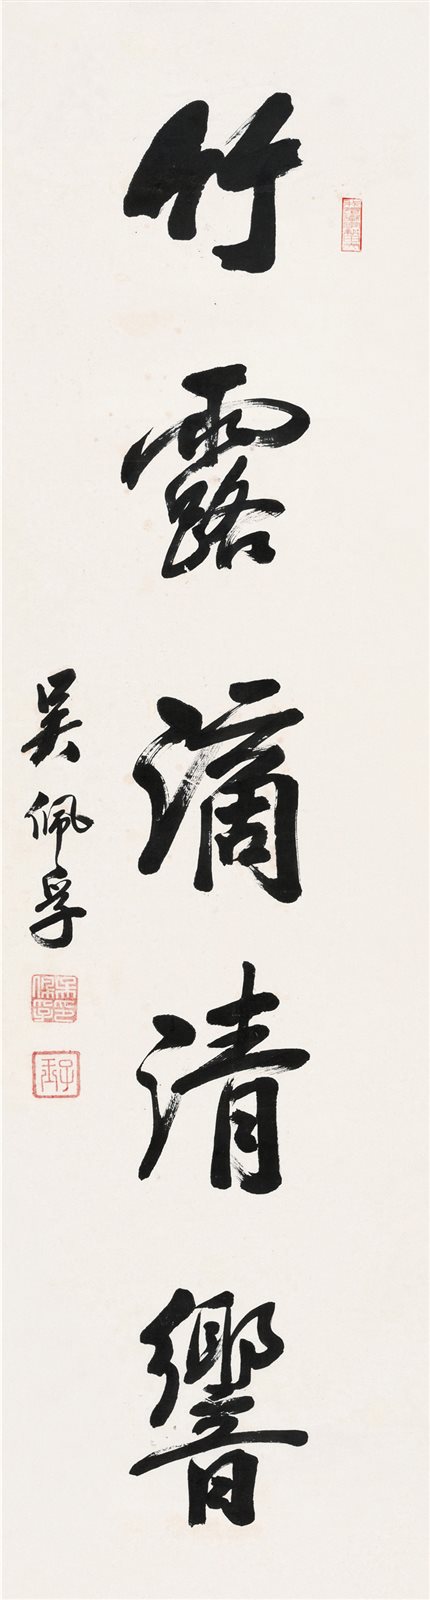 竹露滴清響
吳佩孚